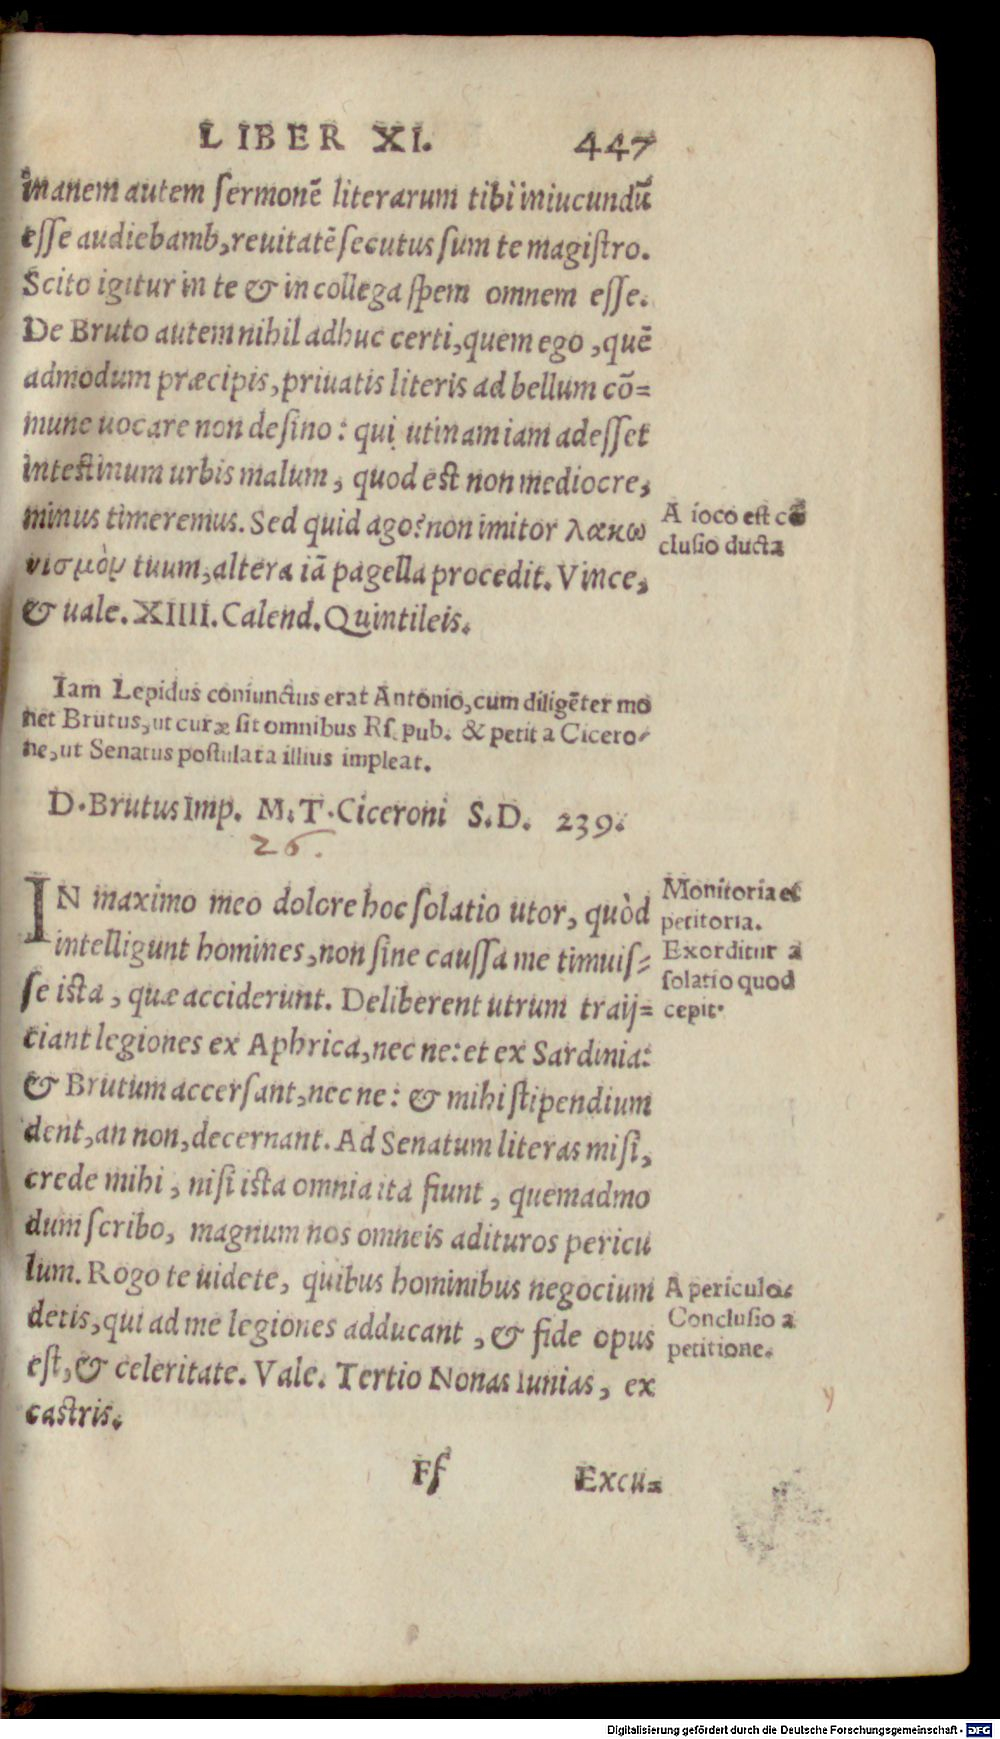 LIBER XI. 447
inanem autem ſermonē literarum tibi iniucundū
eſſe audiebamb,reuitatē ſecutus ſum te magiſtro.
Scito igitur in te & in collega ſpem omnem eſſe.
De Bruto autem nihil adhuc certi,quem ego ,quē
admodum præcipis,priuatis literis ad bellum cō=
mune uocare non deſino : qui utinam iam adeſſet
inteſtinum urbis malum , quod eſt non mediocre,
minus timeremus. Sed quid ago? non imitor λακω
νισμὸμ tuum,altera iā pagella procedit. Vince,
& uale. XIIII. Calend. Quintileis.
A ioco eſt cō
cluſio ducta
Iam Lepidus coniunctus erat Antonio,cum diligēter mo
net Brutus,ut curæ ſit omnibus Rſ. pub. & petit a Cicero-
ne,ut Senatus poſtulata illius impleat.
D. Brutus Imp. M. T. Ciceroni S. D. 239.
26.
IN maximo meo dolore hoc ſolatio utor, quòd
intelligunt homines,non ſine cauſſa me timuiſ=
ſe iſta , quæ acciderunt. Deliberent utrum traij=
ciant legiones ex Aphrica,nec ne: et ex Sardinia:
& Brutum accerſant,nec ne : & mihi ſtipendium
dent,an non,decernant. Ad Senatum literas miſi,
crede mihi , niſi iſta omnia ita fiunt , quemadmo
dum ſcribo, magnum nos omneis adituros pericu
lum. Rogo te uidete, quibus hominibus negocium
detis,qui ad me legiones adducant , & fide opus
eſt,& celeritate. Vale. Tertio Nonas Iunias, ex
caſtris.
Monitoria et
petitoria.
Exorditur a
ſolatio quod
cepit.
A periculos
Concluſio a
petitione.
Ff Excu=
Digitalisierung gefördert durch die Deutsche Forschungsgemeinschaft - DFG